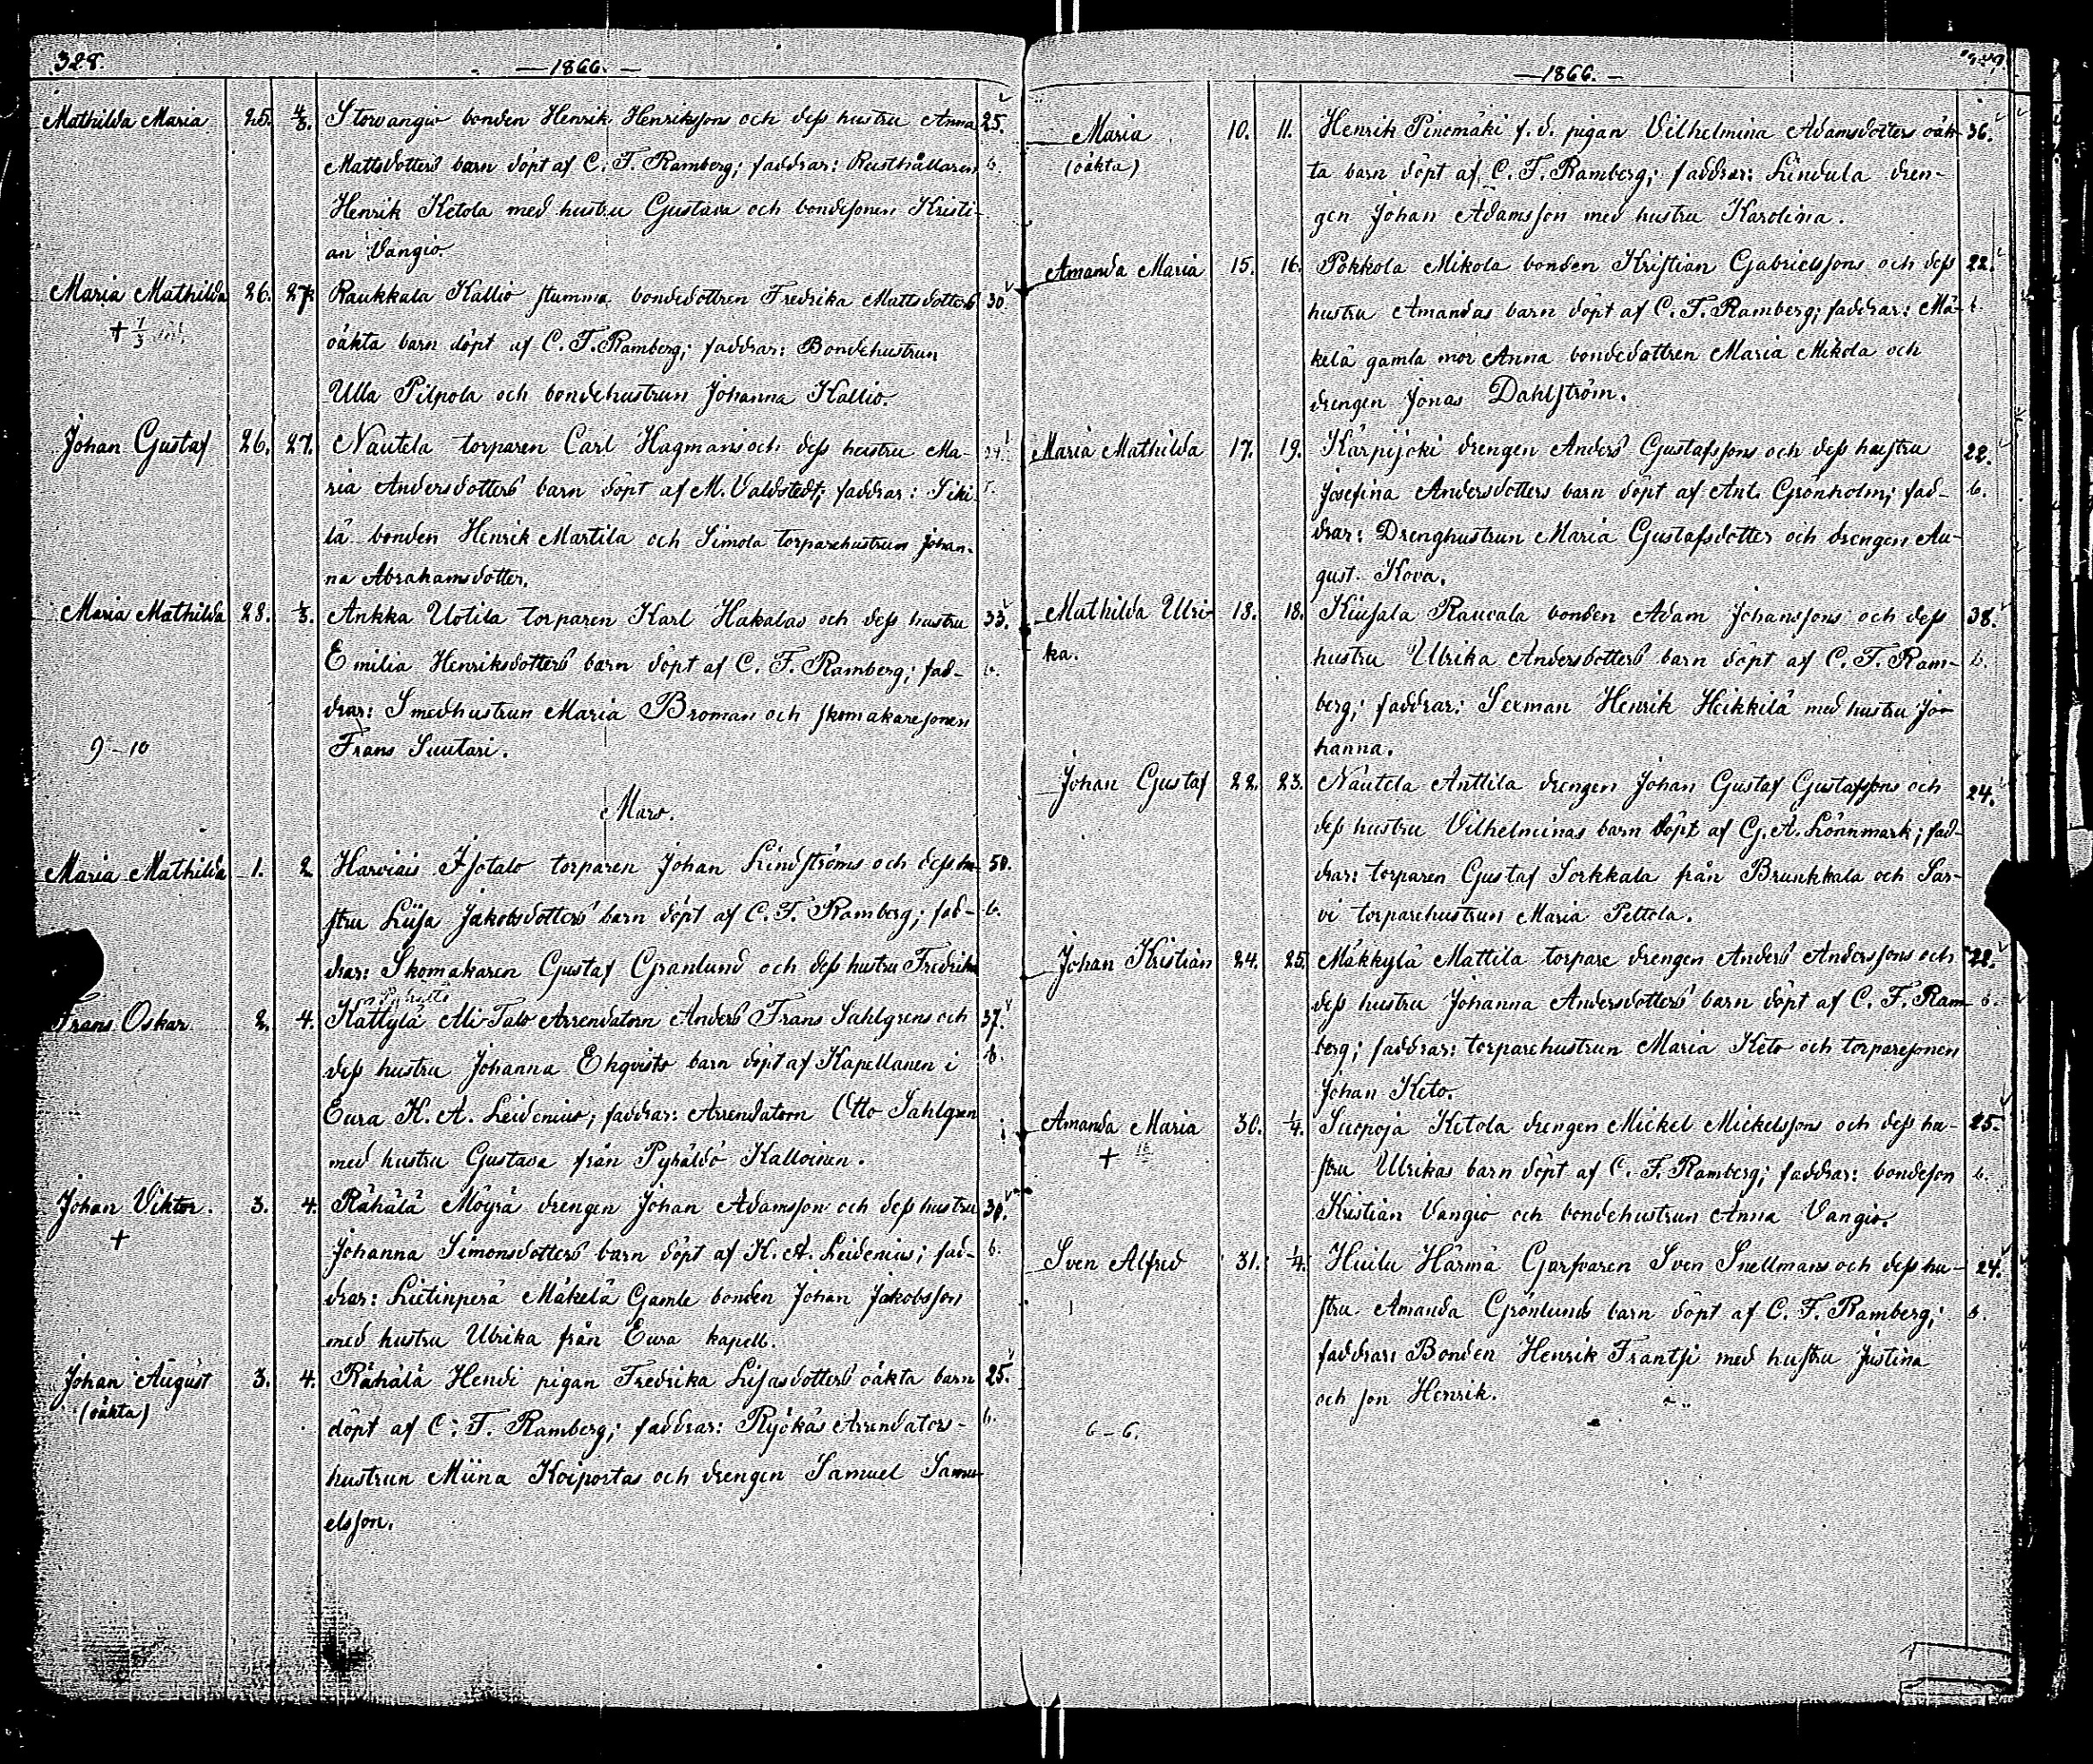 328.
— 1866. —
Mathilda Maria 25. 4/3. Storvangio bonden Henrik Henrikssons och dess hustru Anna 25.
Mattsdotters barn döpt af C. F. Ramberg; faddrar: Rusthållaren b.
Henrik Ketola med hustru Gustava och bondesonen Kristi-
an Vangio.
Maria Mathilda 26. 27. Raukkala Kallio stumma bondedottren Fredrika Mattsdotters 30.
+ 1/3 oäkta barn döpt af C. F. Ramberg; faddrar: Bondehustrun
Ulla Pilpola och bondehustrun Johanna Kallio.
Johan Gustaf 26. 27. Nautela torparen Carl Hagmans och dess hustru Ma-
ria Andersdotters barn döpt af M. Valdstedt; faddrar: Siki
lä bonden Henrik Martila och Simola torparehustrun Johan-
na Abrahamsdotter.
Maria Mathilda 28. 1/3. Ankka Uotila torparen Karl Hakalas och dess hustru 33.
Emilia Henriksdotters barn döpt af C. F. Ramberg; fad- b.
drar: Smedhustrun Maria Broman och skomakaresonen
Frans Suutari.
9-10
Mars.
Maria Mathilda 1. 2. Harviais Isotalo torparen Johan Lindströms och dess hu- 50.
stru Liisa Jakobsdotters barn döpt af C. F. Ramberg; fad- b.
drar: Skomakaren Gustaf Granlund och dess hustru Fredrika
Frans Oskar 2. 4. Kättylä Ali Talo Arrendatorn Anders Frans Sahlgrens och 37.
dess hustru Johanna Ekqvists barn döpt af Kapellanen i b.
Eura K. A. Leidenius; faddrar: Arrendatorn Otto Sahlgren
med hustru Gustava från Pyhäldö Kalloinen.
Johan Viktor. 3. 4. Rähälä Möyrä drengen Johan Adamsson och dess hustru 30.
+ Johanna Simonsdotters barn döpt af K. A. Leidenius; fad- b.
drar: Lietinperä Mäkelä Gamle bonden Johan Jakobsson
med hustru Ulrika från Eura kapell.
Johan August 3. 4. Rähälä Hendi pigan Fredrika Lisasdotters oäkta barn 25.
(oäkta) döpt af C. F. Ramberg; faddrar: Ryökäs Arrendators- b.
hustrun Miina Koiportas och drengen Samuel Samu-
elsson.
— 1866. —
Maria 10. 11. Henrik Pinomäki f. d. pigan Vilhelmina Adamsdotters oäk- 36.
(oäkta) ta barn döpt af C. F. Ramberg; faddrar: Lindula dren-
gen Johan Adamsson med hustru Karolina.
Amanda Maria 15. 16. Pokkola Mikola bonden Kristian Gabrielssons och dess 22.
hustru Amandas barn döpt af C. F. Ramberg; faddrar: Mä- b.
kelä gamla mor Anna bondedottren Maria Mikola och
drengen Jonas Dahlström.
Maria Mathilda 17. 19. Karpijoki drengen Anders Gustafssons och dess hustru 22.
Josefina Andersdotters barn döpt af Ant. Grönholm; fad- b.
drar: Drenghustrun Maria Gustafsdotter och drengen Au-
gust Kova.
Mathilda Ulri- 18. 18. Kiusala Raucala bonden Adam Johanssons och dess 38.
ka. hustru Ulrika Andersdotters barn döpt af C. F. Ram- b.
berg; faddrar: Sexman Henrik Heikkilä med hustru Jo-
hanna.
Johan Gustaf 22. 23. Nautela Anttila drengen Johan Gustaf Gustafssons och 24.
dess hustru Vilhelminas barn döpt af G. A. Lönnmark; fad-
drar: torparen Gustaf Sorkkala från Brunkkala och Sar-
vi torparehustrun Maria Peltola.
Johan Kristian 24. 25. Mäkkylä Mattila torpare drengen Anders Anderssons och 22.
dess hustru Johanna Andersdotters barn döpt af C. F. Ram- b.
berg; faddrar: torparehustrun Maria Keto och torparesonen
Johan Keto.
Amanda Maria 30. 1/4. Suopoja Ketola drengen Mickel Mickelssons och dess hu- 25.
+ stru Ulrikas barn döpt af C. F. Ramberg; faddrar: bondeson b.
Kristian Vangio och bondehustrun Anna Vangio.
Sven Alfred 31. 1/4. Huilu Härmä Garfvaren Sven Snellmans och dess hu- 24.
stru Amanda Grönlunds barn döpt af C. F. Ramberg; b.
faddrar: Bonden Henrik Frantsi med hustru Justina
och son Henrik.
6-6.